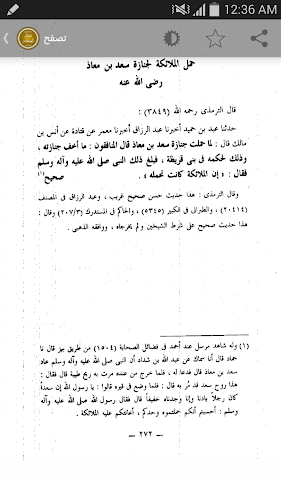 12:36 AM
تصفح
حمل الملائكة لجنازة سعد بن معاذ
رضى الله عنه
قال الترمذى رحمه الله (٣٨٤٩) :
حدثنا عبد بن حميد أخبرنا عبد الرزاق أخبرنا معمر عن قتادة عن أنس بن
مالك قال : لما حملت جنازة سعد بن معاذ قال المنافقون : ما أخف جنازته ،
وذلك لحكمه فى بنى قريظة ، فبلغ ذلك النبى صلى الله عليه وآله وسلم
فقال : « إن الملائكة كانت تحمله » . صحيح(١)
وقال الترمذى : هذا حديث حسن صحيح غريب ، وعبد الرزاق فى المصنف
(٢٠٤١٤) ، والطبرانى فى الكبير (٥٣٤٥) ، والحاكم فى المستدرك (٢٠٧/٣) وقال :
هذا حديث صحيح على شرط الشيخين ولم يخرجاه ، ووافقه الذهبى .
(١) وله شاهد مرسل عند أحمد فى فضائل الصحابة (١٥٠٤) من طريق بهز قال نا
حماد قال أنا سماك عن عبد الله بن شداد أن النبى صلى الله عليه وآله وسلم عاد
سعد بن معاذ قال فدعا له ، فلما خرج من عنده مرت به ريح طيبة قال فقال :
هذا روح سعد قد مُر به قال : فلما وضع فى قبره قالوا : يا رسول الله إن سعداً
كان رجلاً بادنا وإنا وجدناه خفيفاً قال فقال : رسول الله صلى الله عليه وآله
وسلم : أحسبتم أنكم حملتموه وحدكم ، أعانتكم عليه الملائكة .
— ٢٧٢ —